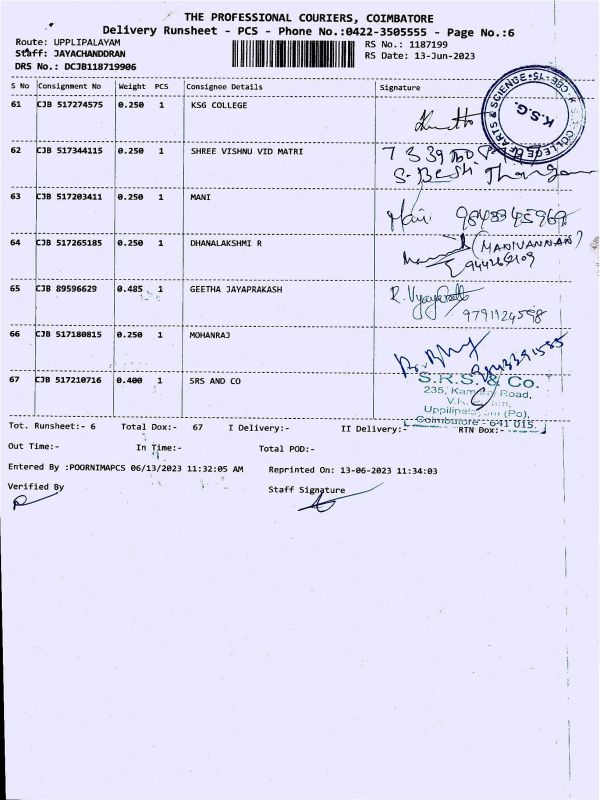 THE PROFESSIONAL COURIERS, COIMBATORE
Delivery Runsheet - PCS - Phone No.:0422-3505555 - Page No.:6
Route: UPPLIPALAYAM RS No.: 1187199
Staff: JAYACHANDDRAN RS Date: 13-Jun-2023
DRS No.: DCJB118719906
S No Consignment No Weight PCS Consignee Details Signature
61 CJB 517274575 0.250 1 KSG COLLEGE
K.S.G. COLLEGE OF ARTS & SCIENCE CBE-15
62 CJB 517344115 0.250 1 SHREE VISHNU VID MATRI
63 CJB 517203411 0.250 1 MANI
Mani
64 CJB 517265185 0.250 1 DHANALAKSHMI R
(MANIVANNAN)
65 CJB 89596629 0.485 1 GEETHA JAYAPRAKASH
9791124598
66 CJB 517180815 0.250 1 MOHANRAJ
67 CJB 517210716 0.400 1 SRS AND CO
S.R.S. & Co.
235, Road,
Uppilipalayam (Po),
Coimbatore - 641 015.
Tot. Runsheet:- 6 Total Dox:- 67 I Delivery:- II Delivery:- RTN Dox:-
Out Time:- In Time:- Total POD:-
Entered By :POORNIMAPCS 06/13/2023 11:32:05 AM Reprinted On: 13-06-2023 11:34:03
Verified By Staff Signature